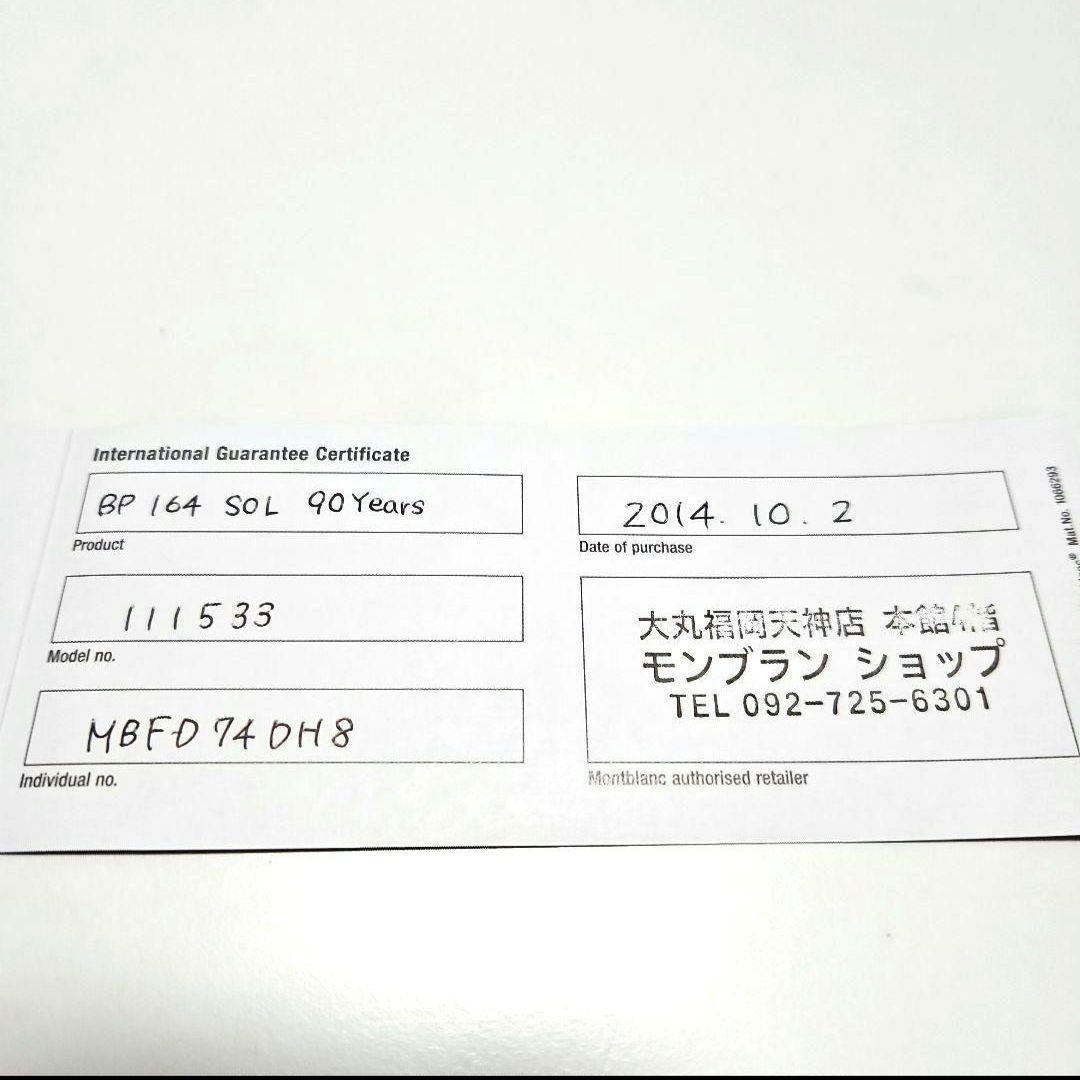 International Guarantee Certificate
BP 164 SOL 90Years
Product
111533
Model no.
MBFD74DH8
Individual no.
2014. 10. 2
Date of purchase
大丸福岡天神店 本館4階
モンブラン ショップ
TEL 092-725-6301
Montblanc authorised retailer
Mat.No. 1066293